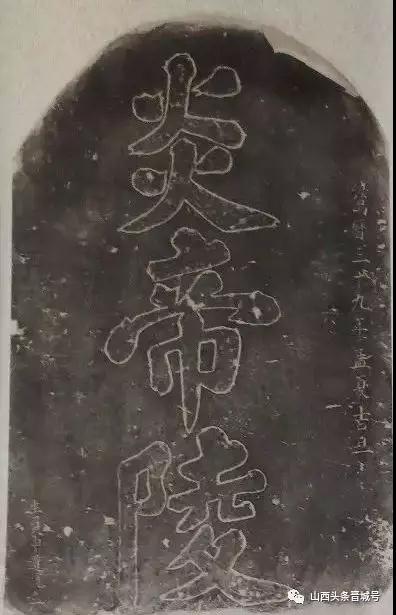 萬曆三十九年孟夏吉旦
炎帝陵
山西头条晋城号